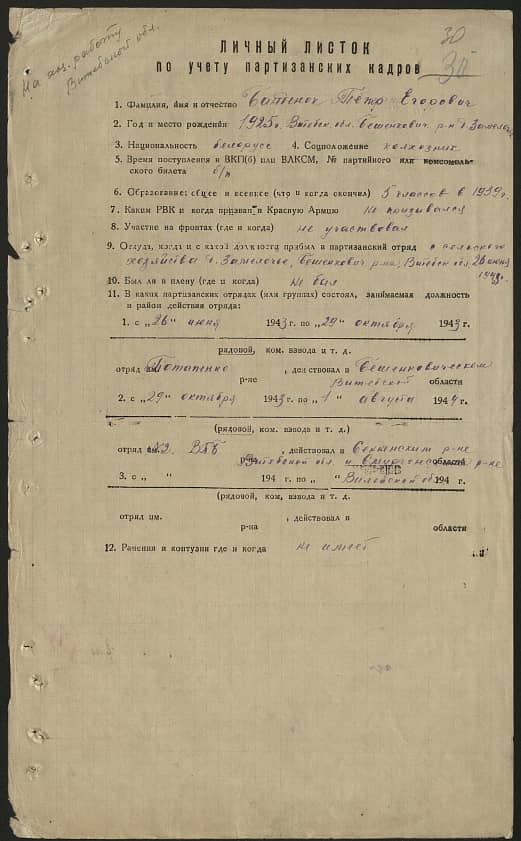 На хоз. работу
Витебской обл.
30
30
ЛИЧНЫЙ ЛИСТОК
по учету партизанских кадров
1. Фамилия, имя и отчество Петр Егорович
2. Год и место рождения 1925 г. Витебск. обл. Бешенкович. р-н д.
3. Национальность белорусс 4. Соцположение колхозник
5. Время поступления в ВКП(б) или ВЛКСМ, № партийного или комсомоль-
ского билета б/п
6. Образование: общее и военное (что и когда окончил) 5 классов в 1939 г.
7. Каким РВК и когда призван в Красную Армию Не призывался
8. Участие на фронтах (где и когда) не участвовал
9. Откуда, когда и с какой должности прибыл в партизанский отряд с сельского
хозяйства д. Бешенкович. р-на, Витебск. обл. 26 июня
1943 г.
10. Был ли в плену (где и когда) не был
11. В каких партизанских отрядах (или группах) состоял, занимаемая должность
и район действия отряда:
1. с „26" июня 1943 г. по „29" октября 1943 г.
рядовой, ком. взвода и т. д.
отряд им. Потапенко, действовал в Бешенковическом
р-не Витебской области
2. с „29" октября 1943 г. по „1" августа 1944 г.
(рядовой, ком. взвода и т. д.)
отряд им. ВПБ, действовал в р-не
р-не обл. и р-не области
3. с „ " 194 г. по „ " Вилейской об. 194 г.
(рядовой, ком. взвода и т. д.)
отряд им. , действовал в
р-на области
12. Ранения и контузии где и когда не имеет